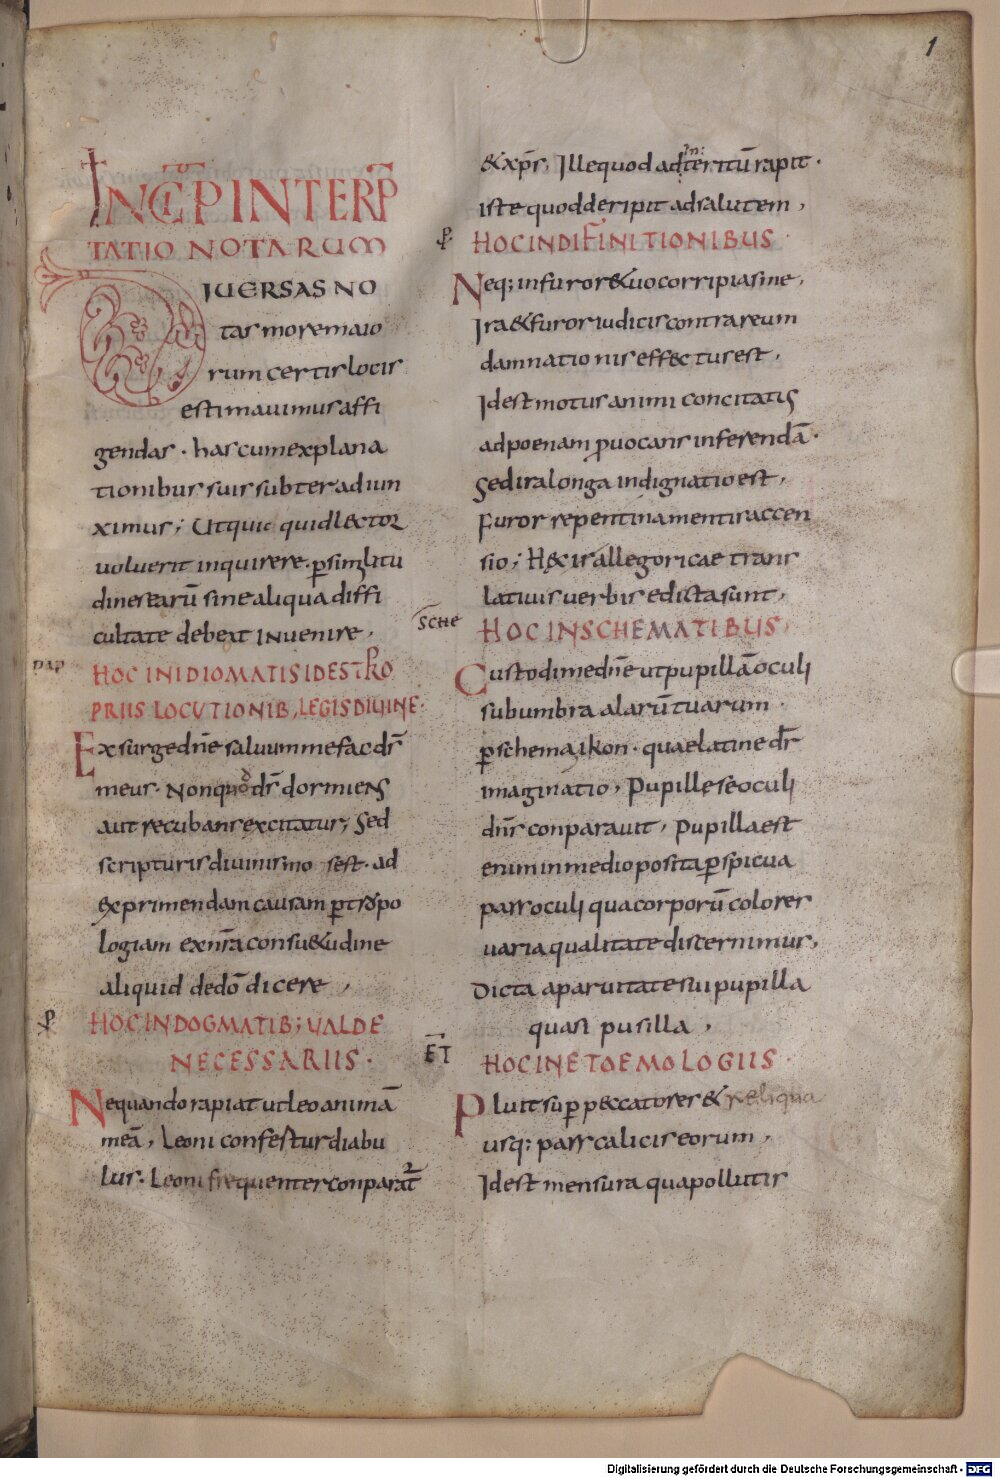 1
INCIP INTERP
TATIO NOTARUM
DIUERSAS NO
tas more maio
rum certis locis
estimauimus affi
gendas · has cum explana
tionibus suis subter adiun
ximus; Ut qui quid lector
uoluerit inquirere· ꝑ similitu
dines earū sine aliqua diffi
cultate debeat inuenire,
PAP
HOC IN IDIOMATIS ID EST PRO
PRIIS LOCUTIONIB, LEGIS DIUINE·
Exsurge dn̄e saluum me fac ds̄
meus· Non quod ds̄ dormiens
aut recubans excitatur; Sed
scripturis diuinis mos est· ad
exprimendam causam ꝑ tropo
logiam ex nr̄a consuetudine
aliquid de dō dicere,
HOC IN DOGMATIB; UALDE
NECESSARIIS·
Nequando rapiat ut leo animā
meā, Leoni confertur diabu
lus· Leoni frequenter conparat̄
& xp̄s, Ille quod ad interitū rapit·
iste quod deripit ad salutem,
HOC IN DIFINITIONIBUS
Neq; in furore tuo corripias me,
Ira & furor iudicis contra reum
damnationis effectus est,
Id est motus animi concitatis
ad poenam prouocans inferendā·
Sed ira longa indignatio est,
Furor repentina mentis accen
sio; Hęc is allegoricae trans
latiuis uerbis edicta sunt,
SCHE
HOC IN SCHEMATIBUS,
Custodi me dn̄e ut pupillā oculi
sub umbra alarū tuarum·
ꝑ schema ikon· quae latine dr̄
imaginatio, Pupille se oculi
dn̄s conparauit, Pupilla est
enim in medio posita ꝑspicua
pars oculi qua corporū colores
uaria qualitate discernimus,
Dicta a paruitate sui pupilla
quasi pusilla,
ET
HOC IN ETOEMOLOGIIS·
Pluit suꝑ peccatores & reliqua
usq; pars calicis eorum,
Id est mensura qua pollutis
Digitalisierung gefördert durch die Deutsche Forschungsgemeinschaft - DFG